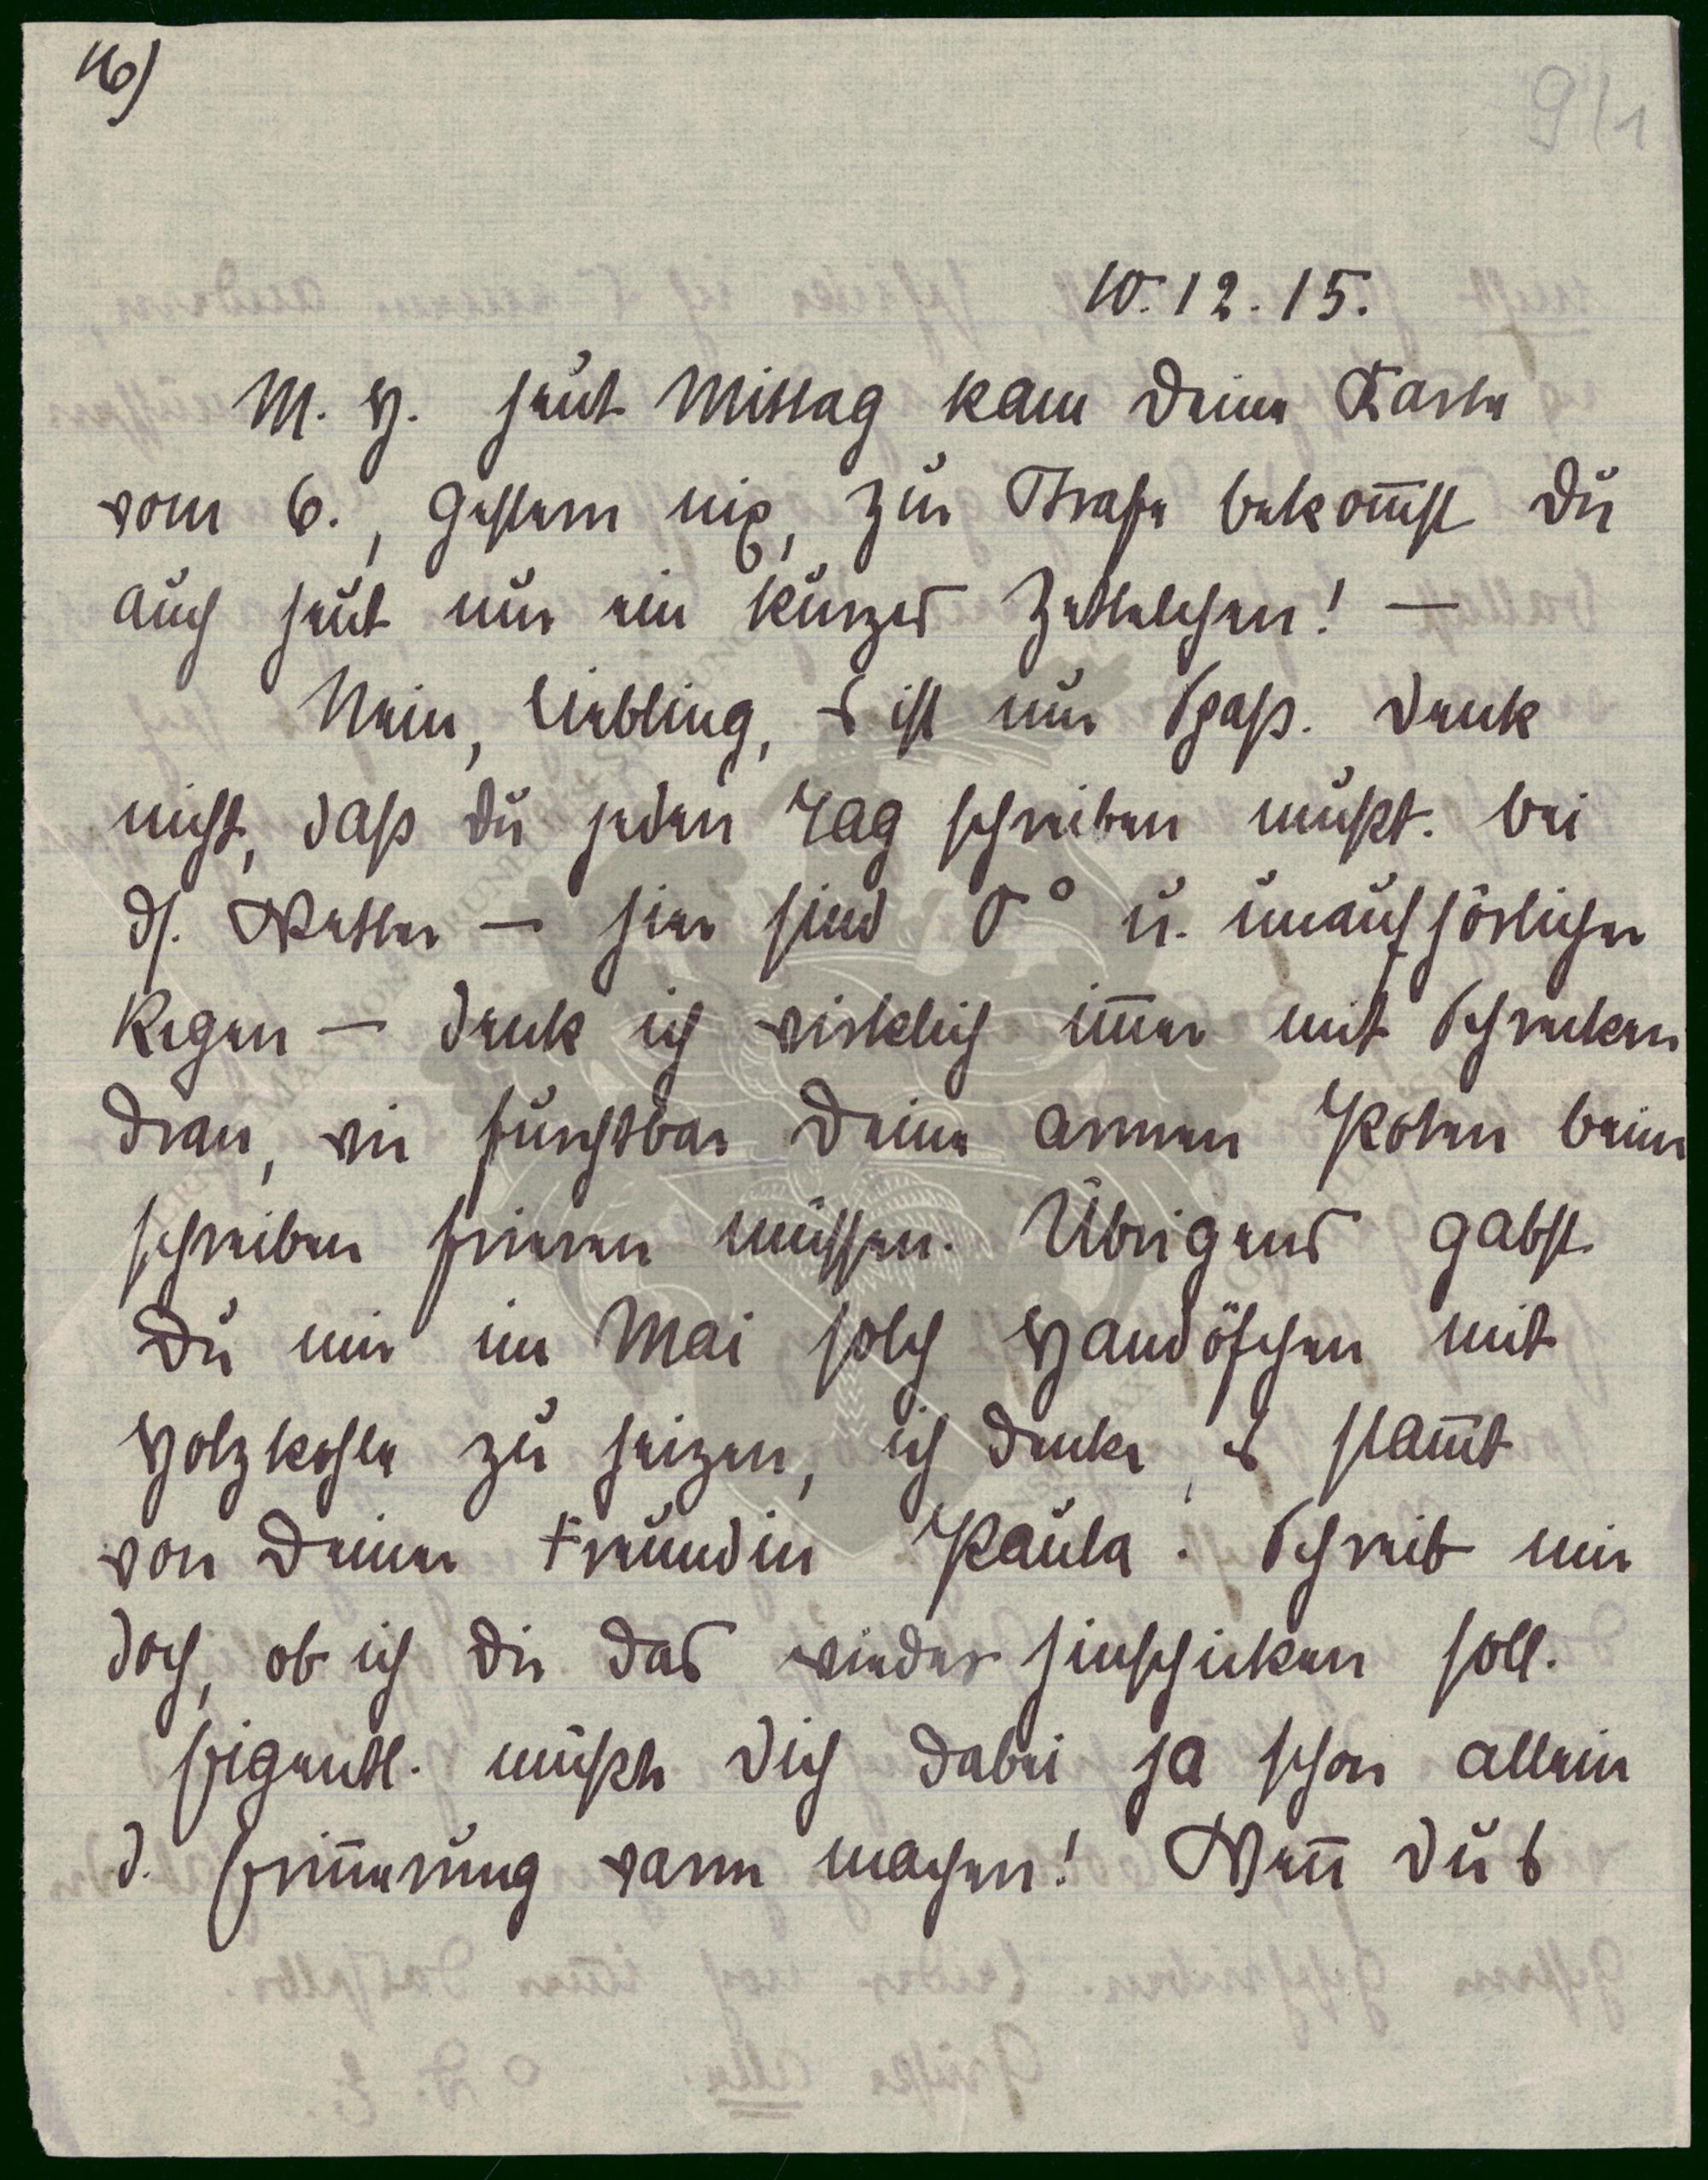 16)
9/1
10.12.15.
M. H. heut Mittag kam Deine Karte
vom 6., gestern nix, zur Strafe bekom̅st Du
auch heut nur ein kurzes Zettelchen! —
Nein, Liebling, s ist nur Spaß. Denk
nicht, daß Du jeden Tag schreiben mußt. Bei
ds. Wetter — hier sind 0° u. unaufhörlicher
Regen — denk ich wirklich im̅er mit Schrecken
dran, wie furchtbar Deine armen Pfoten beim
schreiben frieren müssen. Übrigens gabst
Du mir im Mai solch Handöfchen mit
Holzkohle zu heizen, ich denke, es stam̅t
von Deiner Freundin Paula. Schreib mir
doch, ob ich Dir das wieder hinschicken soll.
Eigentl. müßte Dich dabei ja schon allein
d. Erin̅erung warm machen! Wen̅ Du's